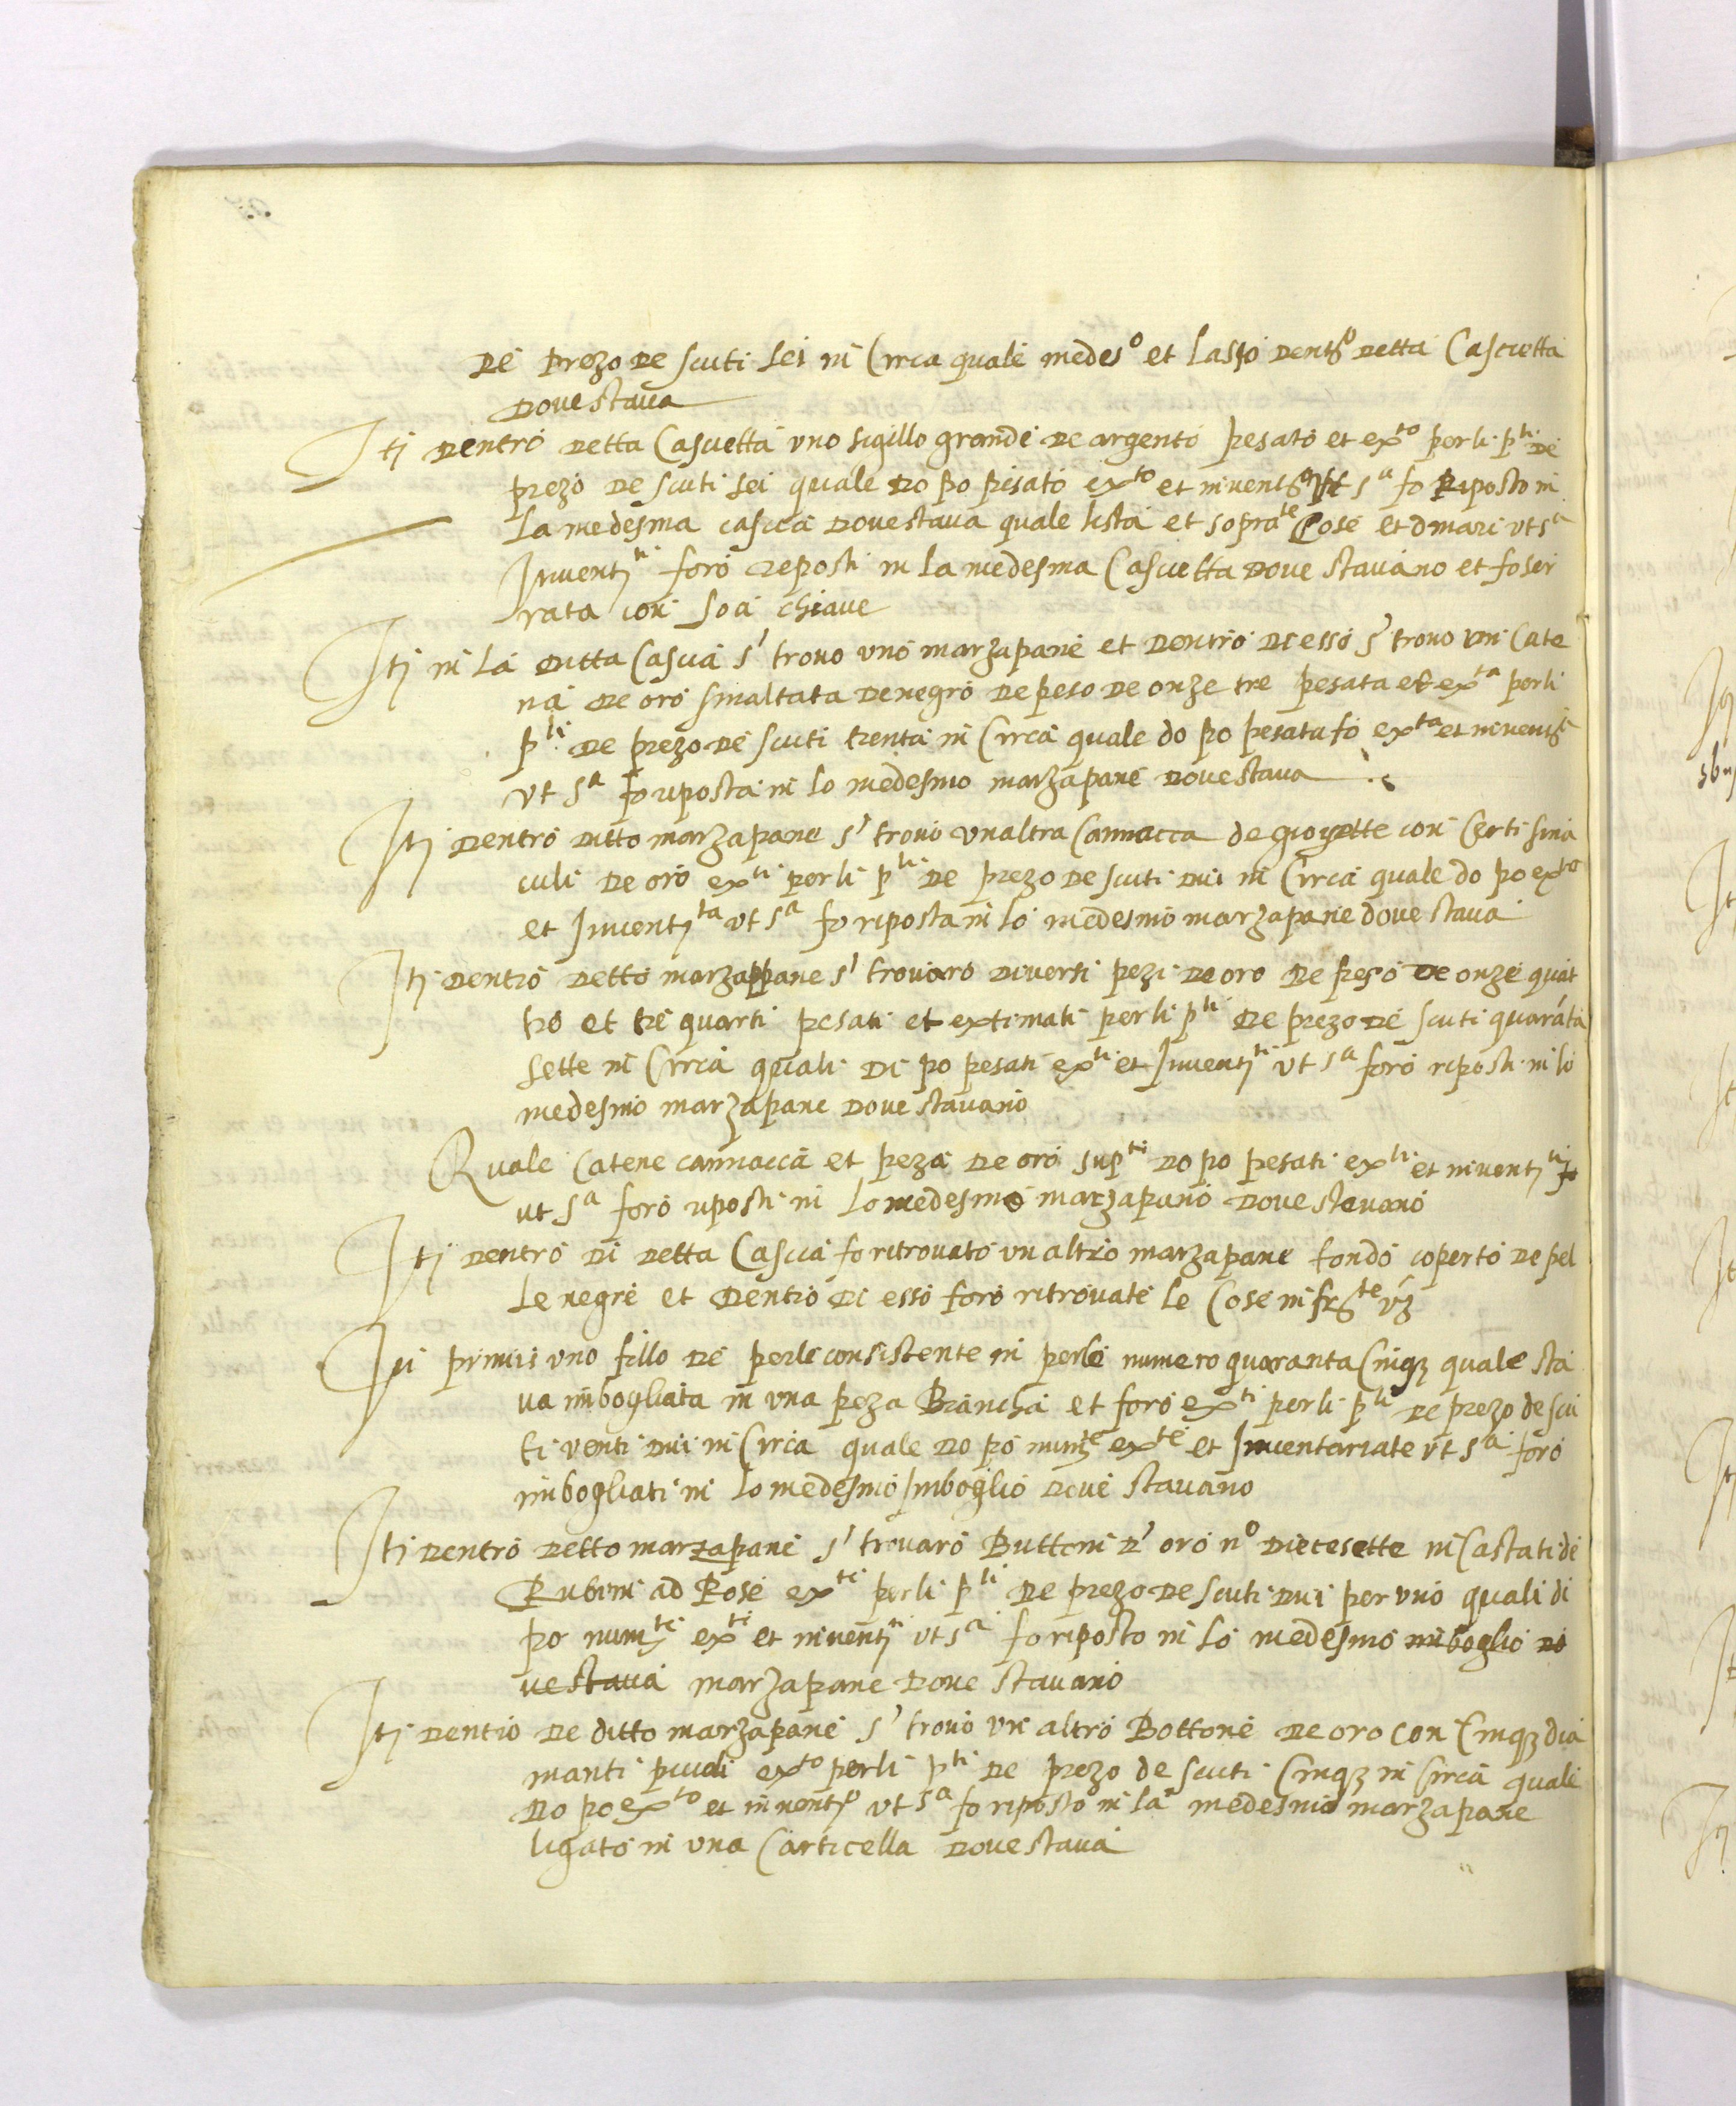 de prezo de scuti sei in Circa quale medes⁰ et lassò dentro detta Cascietta
dove stava
Itj dentro detta Cascietta uno sigillo grande de argento pesato et exto per li pti de
prezo de scuti sei quale do po pesato exto et invento ut sa fo riposto in
la medesma cascia dove stava quale lista et soprate Cose et dinari ut sa
Inventjti foro reposti in la medesma Cascietta dove stavano et fo ser
rata con soa chiave
Itj in la ditta Cascia s' trovo uno marzapane et dentro di esso s' trovo un Cate
na de oro smaltata de negro de peso de onze tre pesata et exta per li
pti de prezo de scuti trenta in Circa quale do po pesata fo exta et invent
ut sa fo riposta in lo medesmo marzapane dove stava
Itj dentro ditto marzapane s' trovò un altra Cannacca de gioyette con Certi sina
culi de oro exti per li pti de prezo de scuti dui in Circa quale do po exto
et Inventjta ut sa fo riposta in lo medesmo marzapane dove stava
Itj dentro detto marzappane s' trovaro diversi pezi de oro de peso de onze quat
tro et tre quarti pesati et extimati per li pti de prezo de scuti quarāta
sette in Circa quali di po pesati exti et Inventjti ut sa foro riposti in lo
medesmo marzapane dove stavano
Quale Catene cannacca et peza de oro supti do po pesati exti et inventjti fo
ut sa foro riposti in lo medesmo marzapano dove stavano
Itj dentro di detta Cascia fo ritrovato un altro marzapane tondo coperto de pel
le negre et dentro di esso foro ritrovate le Cose infrte vz
In primis uno fillo de perle consistente in perle numero quaranta Cinqz quale sta
va imbogliata in una peza Biancha et foro exti per li pti de prezo de scu
ti venti dui in Circa quale do po numte exte et Inventariate ut sa foro
imbogliati in lo medesmo Imboglio dove stavano
Itj dentro detto marzapane s' trovaro Buttoni d' oro n⁰ diecesette in Castati de
Rubini ad Rose exti per li pti de prezo de scuti dui per uno quali di
po numti exti et inventjti ut sa fo riposto in lo medesmo imboglio do
ve stava marzapane dove stavano
Itj dentro de ditto marzapane s' trovò un altro Bottone de oro con Cinqz dia
manti piccoli exto per li pti de prezo de scuti Cinqz in Circa quale
do po exto et invento ut sa fo riposto in la medesmo marzapane
ligato in una Carticella dove stava